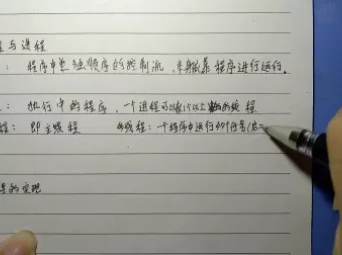 与进程
：程序中单独顺序的控制流，本身依靠程序进行运行，
：执行中的程序，一个进程可以有1个以上的线程
程：即主线程 多线程：一个程序中运行的个任务(
的实现